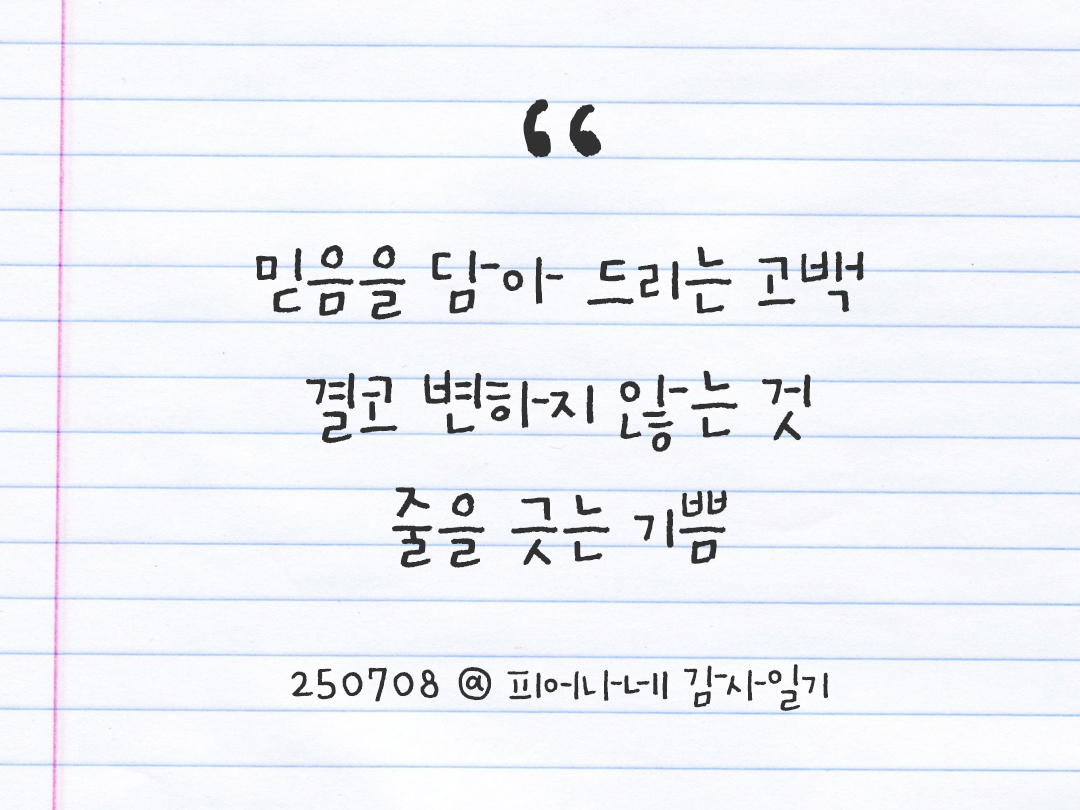 “
믿음을 담아 드리는 고백
결코 변하지 않는 것
줄을 긋는 기쁨
250708 @ 피어나네 감사일기